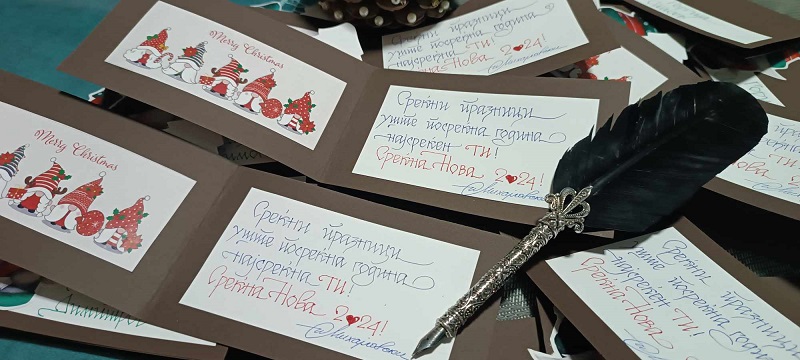 Merry Christmas
Среќни празници
уште посреќна година
најсреќен ТИ!
Среќна Нова 2024!
Merry Christmas
Среќни празници
уште посреќна година
најсреќна ТИ!
Среќна Нова 2024!
Среќни празници
уште посреќна година
најсреќна ТИ!
Среќна Нова 2024!
Среќни празници
уште посреќна година
најсреќен
Среќна Нова